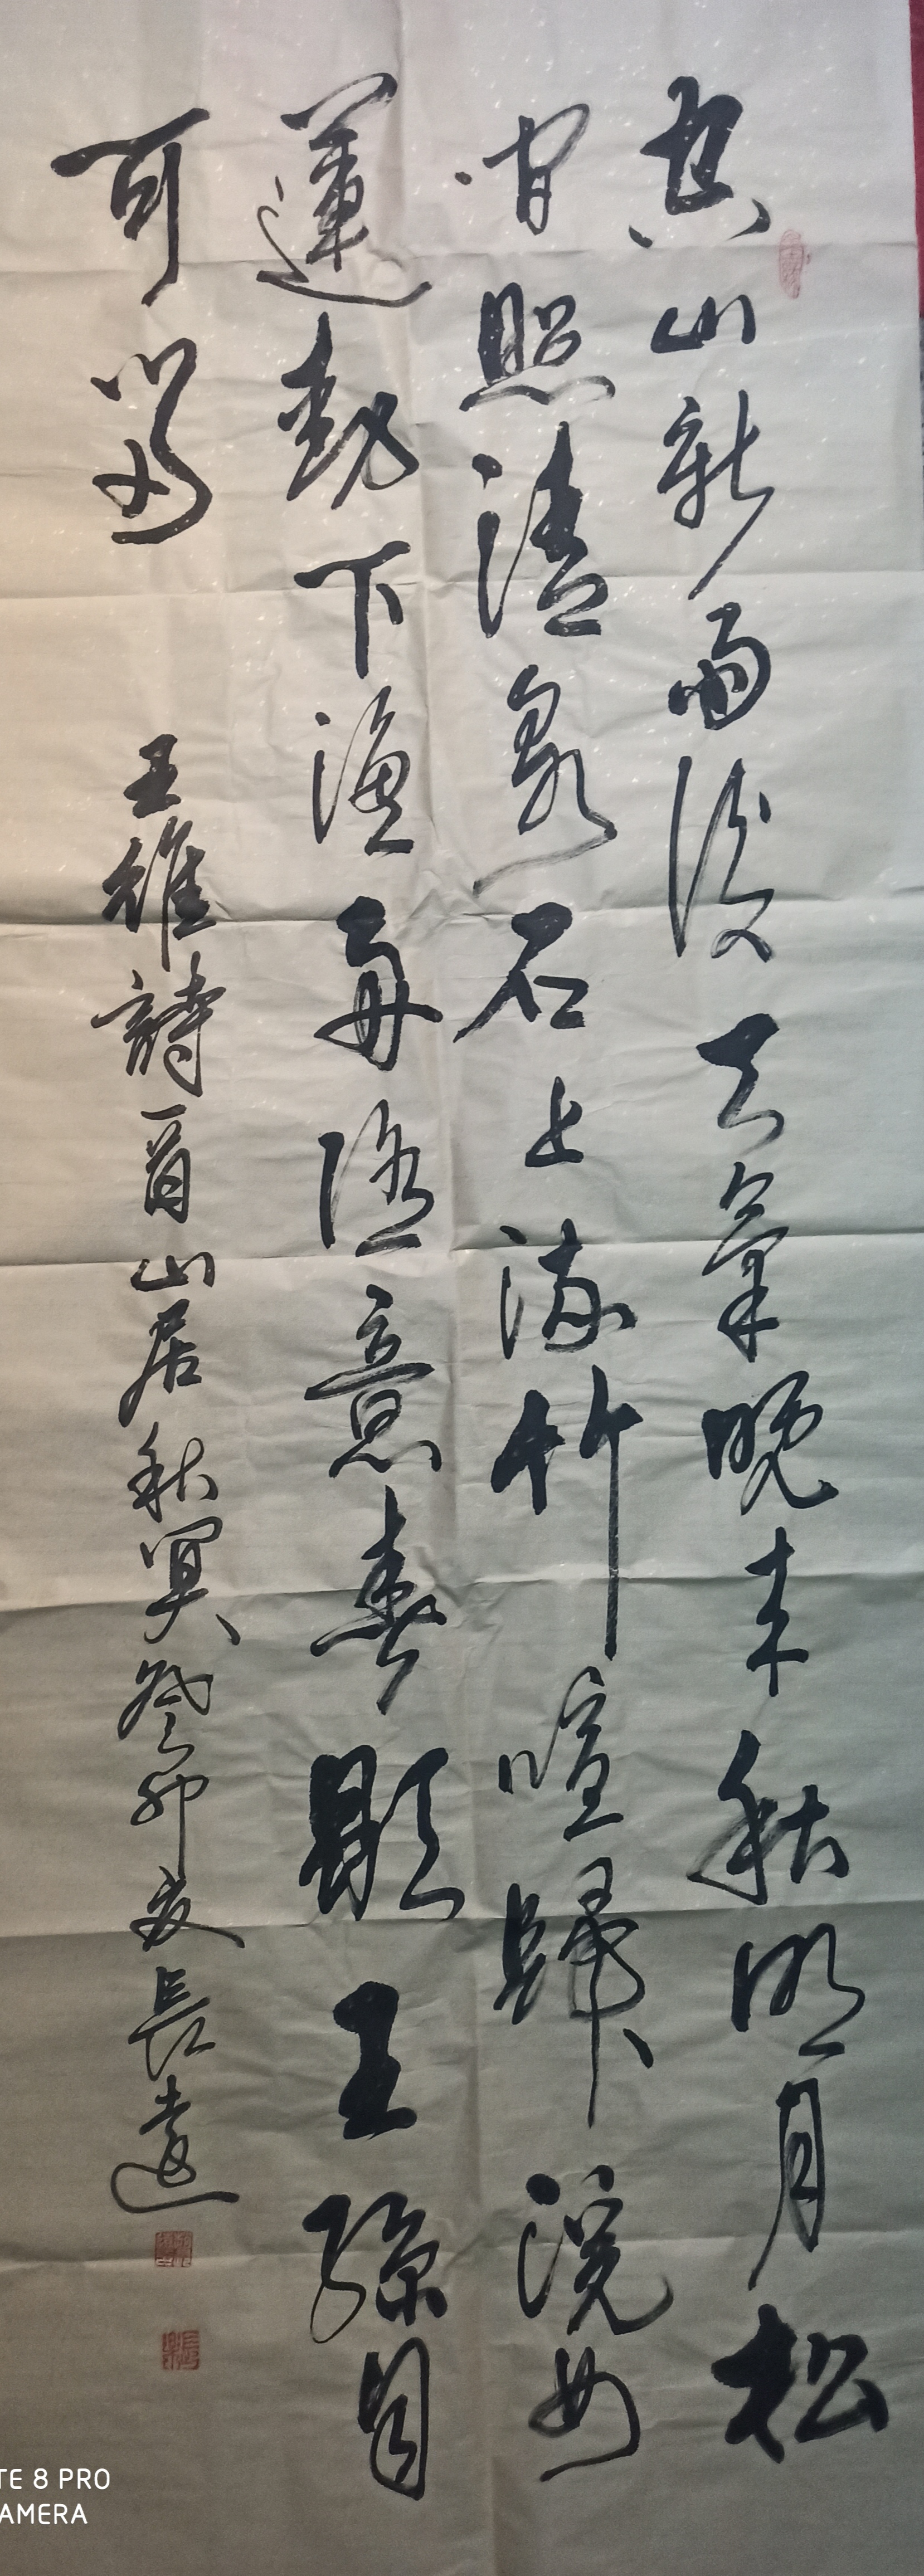 空山新雨後天氣晚来秋明月松
間照清泉石上流竹喧歸浣女
蓮動下漁舟隨意春歇王孫自
可留 王維詩一首山居秋冥癸卯夏長遠
TE 8 PRO
AMERA